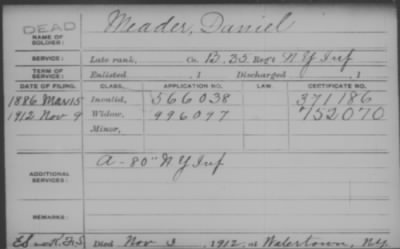 DEAD
NAME OF SOLDIER: Meader, Daniel
SERVICE: Late rank, Co. B. 35. Reg't N Y Inf
TERM OF SERVICE: Enlisted , 1 Discharged , 1
DATE OF FILING. CLASS. APPLICATION NO. LAW. CERTIFICATE NO.
1886 Mar 15 Invalid, 566038 371186
1912 Nov 9 Widow, 996097 752070
Minor,
ADDITIONAL SERVICES: A - 80" N Y Inf
REMARKS:
Died Nov 3, 1912, at Watertown, N.Y.